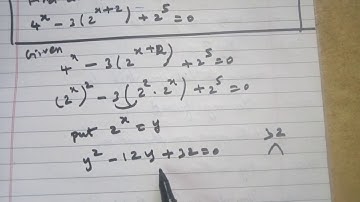 4^x - 3(2^{x+2}) + 2^5 = 0
Given
4^x - 3(2^{x+2}) + 2^5 = 0
(2^x)^2 - 3(2^2 · 2^x) + 2^5 = 0
put 2^x = y
y^2 - 12y + 32 = 0
32